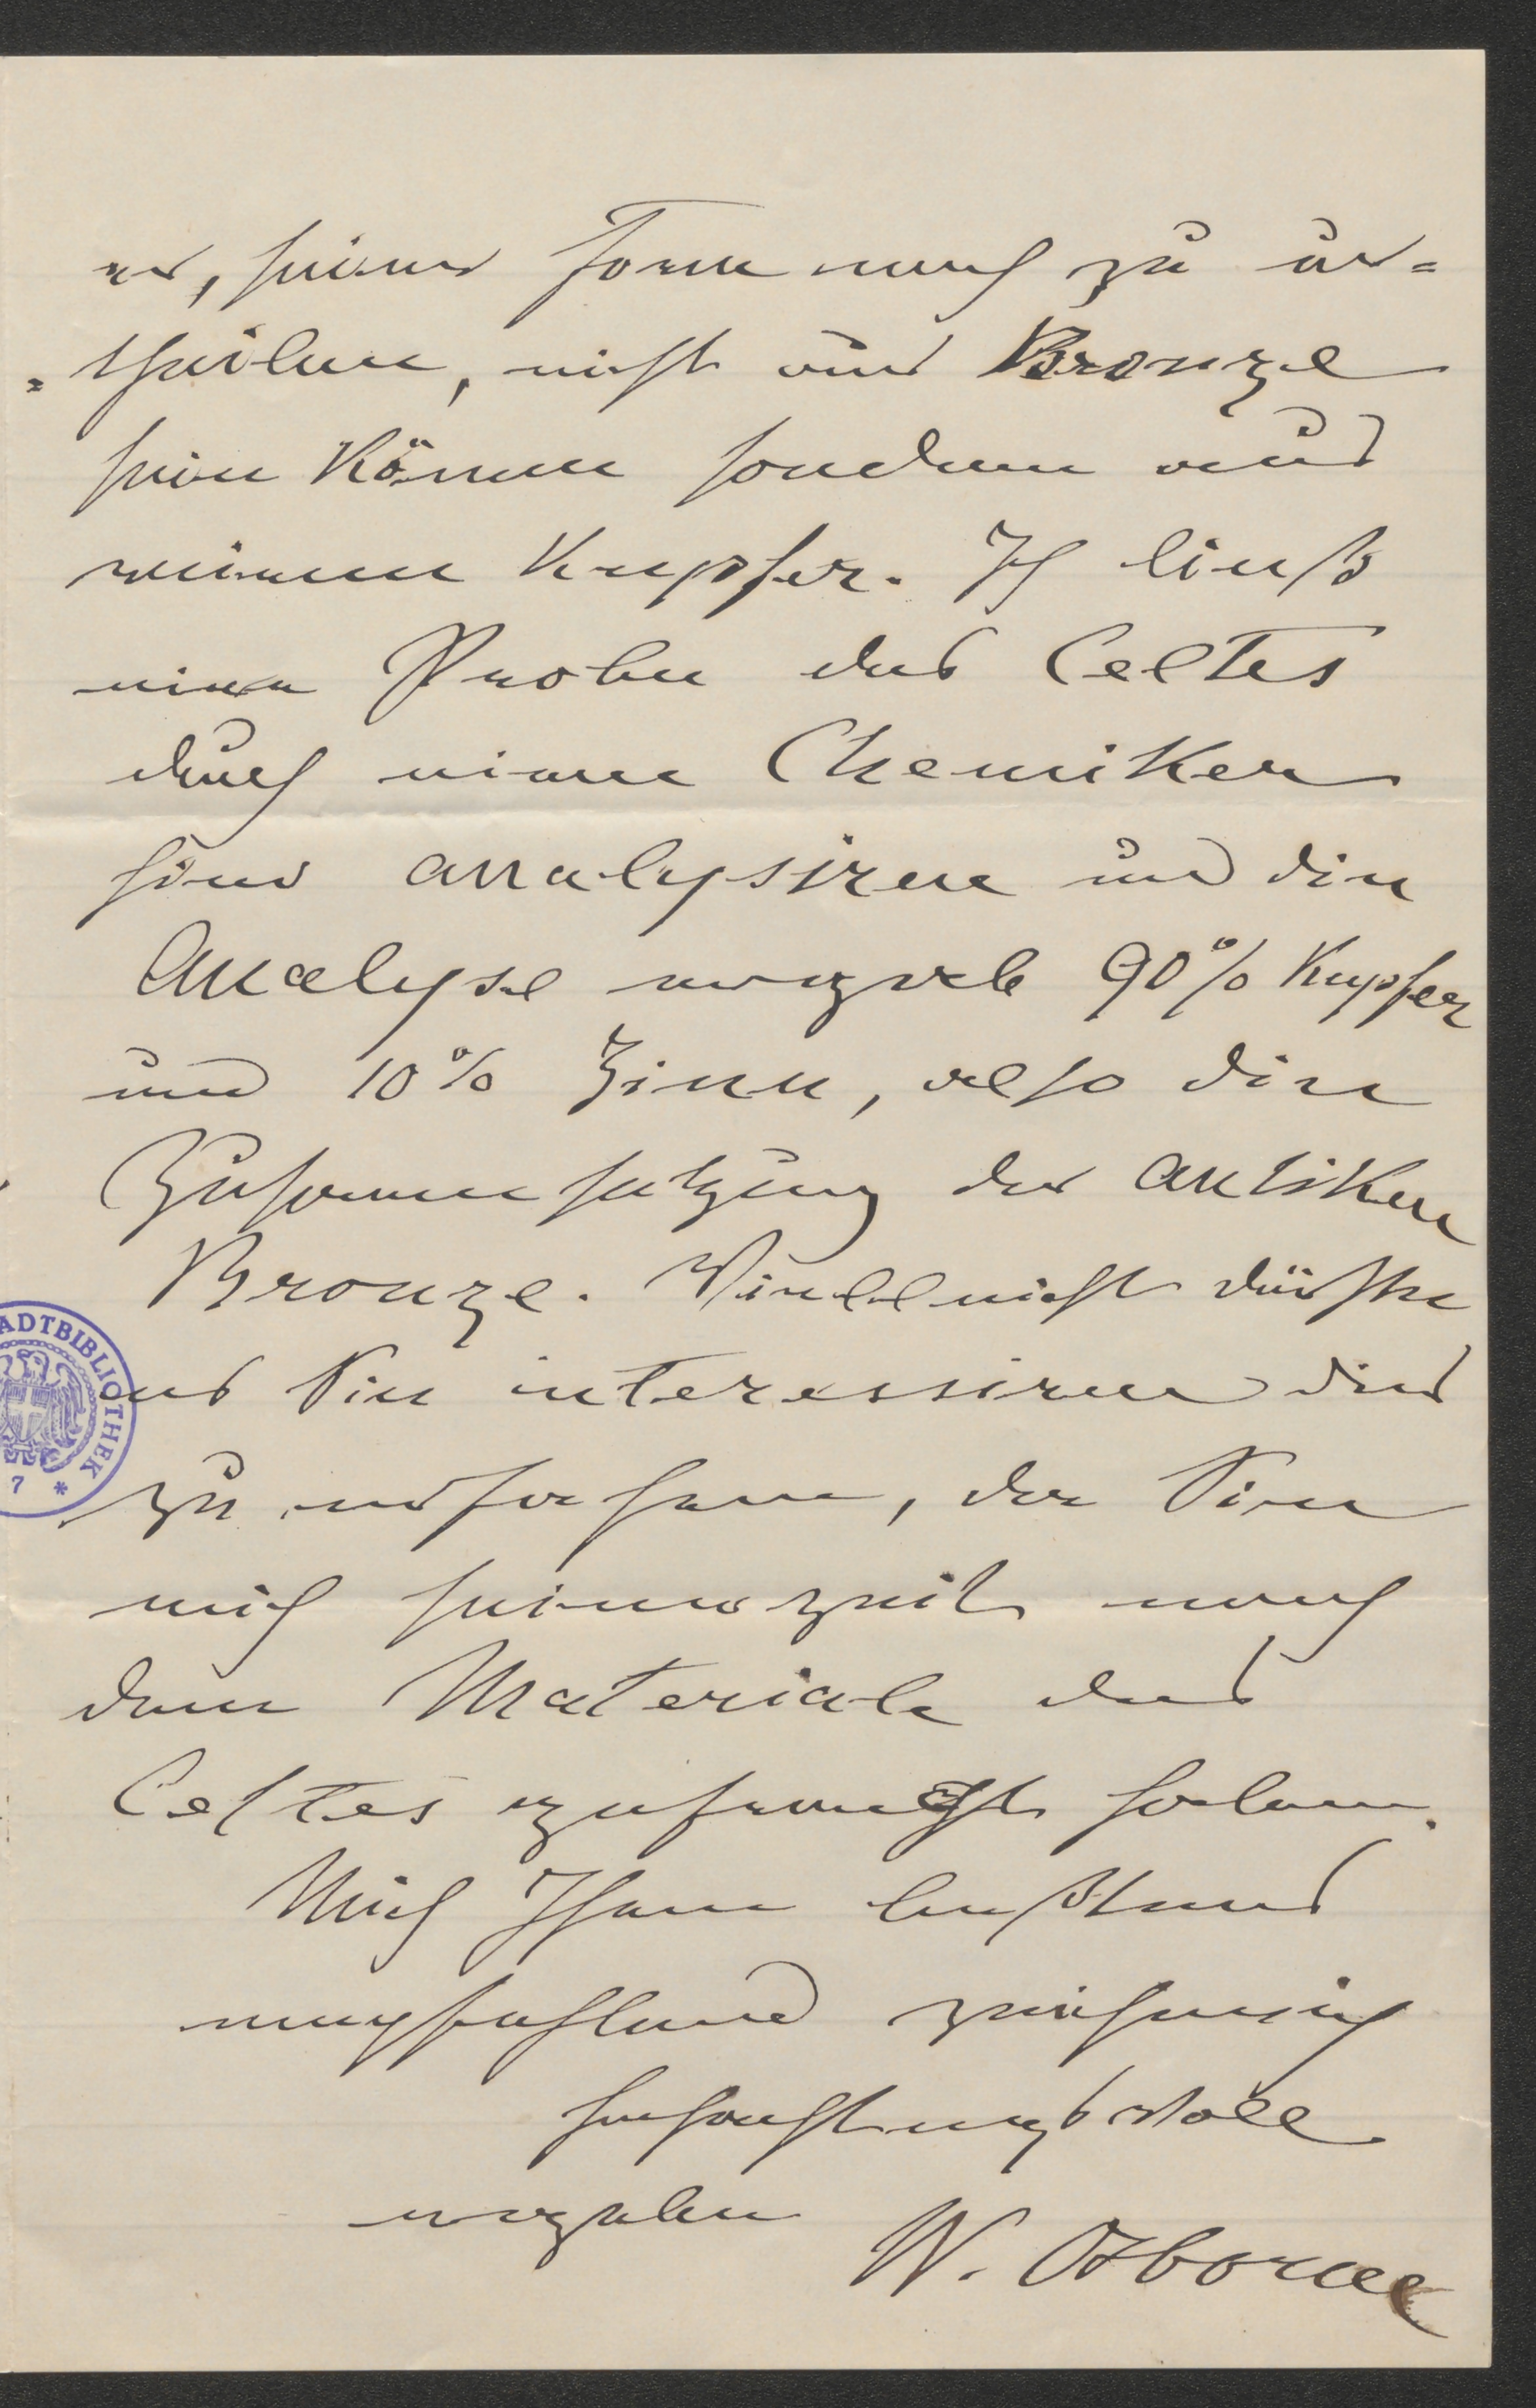 er, seiner Form nach zu ur=
=theilen, nicht aus Bronze
sein könne sondern aus
reinem Kupfer. Ich ließ
eine Probe des Celtes
durch einen Chemiker
hier analysiren und die
Analyse ergab 90% Kupfer
und 10% Zinn, also die
Zusammensetzung der antiken
Bronze. Vielleicht dürfte
es Sie interessiren dies
zu erfahren, da Sie
mich seinerzeit nach
dem Materiale des
Celtes gefragt haben.
Mich Ihnen bestens
empfehlend zeichne ich
hochachtungsvoll
ergeben W. Osborne
STADTBIBLIOTHEK
7 *